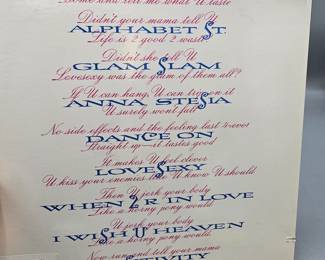 Come and tell me what U taste
Didn't your mama tell U
ALPHABET ST.
Life is 2 good 2 waste
Didn't she tell U
GLAM SLAM
Lovesexy was the glam of them all?
If U can hang, U can trip on it
ANNA STESIA
U surely won't fall
No side effects and the feeling last 4-ever
DANCE ON
Straight up—it tastes good
It makes U feel clever
LOVESEXY
U kiss your enemies like U know U should
Then U jerk your body
WHEN 2 R IN LOVE
Like a horny pony would
U jerk your body
I WISH U HEAVEN
Like a horny pony would
Now run and tell your mama